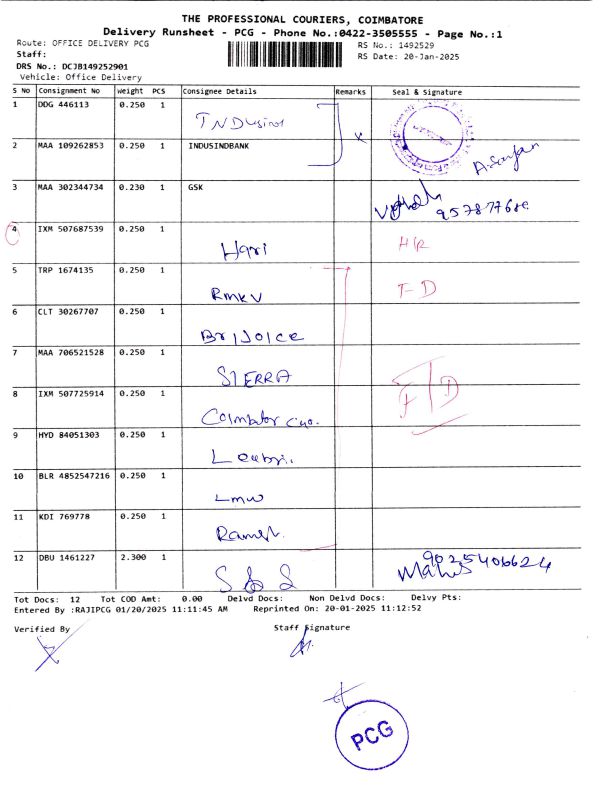 THE PROFESSIONAL COURIERS, COIMBATORE
Delivery Runsheet - PCG - Phone No.:0422-3505555 - Page No.:1
Route: OFFICE DELIVERY PCG
RS No.: 1492529
Staff:
RS Date: 20-Jan-2025
DRS No.: DCJB149252901
Vehicle: Office Delivery
S No Consignment No Weight PCS Consignee Details Remarks Seal & Signature
1 DDG 446113 0.250 1
2 MAA 109262853 0.250 1 INDUSINDBANK
3 MAA 302344734 0.230 1 GSK
4 IXM 507687539 0.250 1 Hari H/R
5 TRP 1674135 0.250 1 RmKV F-D
6 CLT 30267707 0.250 1 BrIJOICE
7 MAA 706521528 0.250 1 SIERRA
8 IXM 507725914 0.250 1 F/D
9 HYD 84051303 0.250 1
10 BLR 4852547216 0.250 1 Lmw
11 KDI 769778 0.250 1 Ramesh
12 DBU 1461227 2.300 1 S & S 9025406624
Tot Docs: 12 Tot COD Amt: 0.00 Delvd Docs: Non Delvd Docs: Delvy Pts:
Entered By :RAJIPCG 01/20/2025 11:11:45 AM Reprinted On: 20-01-2025 11:12:52
Verified By Staff Signature
PCG